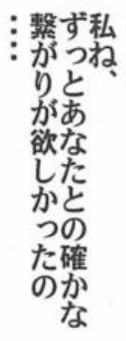 私ね、
ずっとあなたとの確かな
繋がりが欲しかったの
‥‥